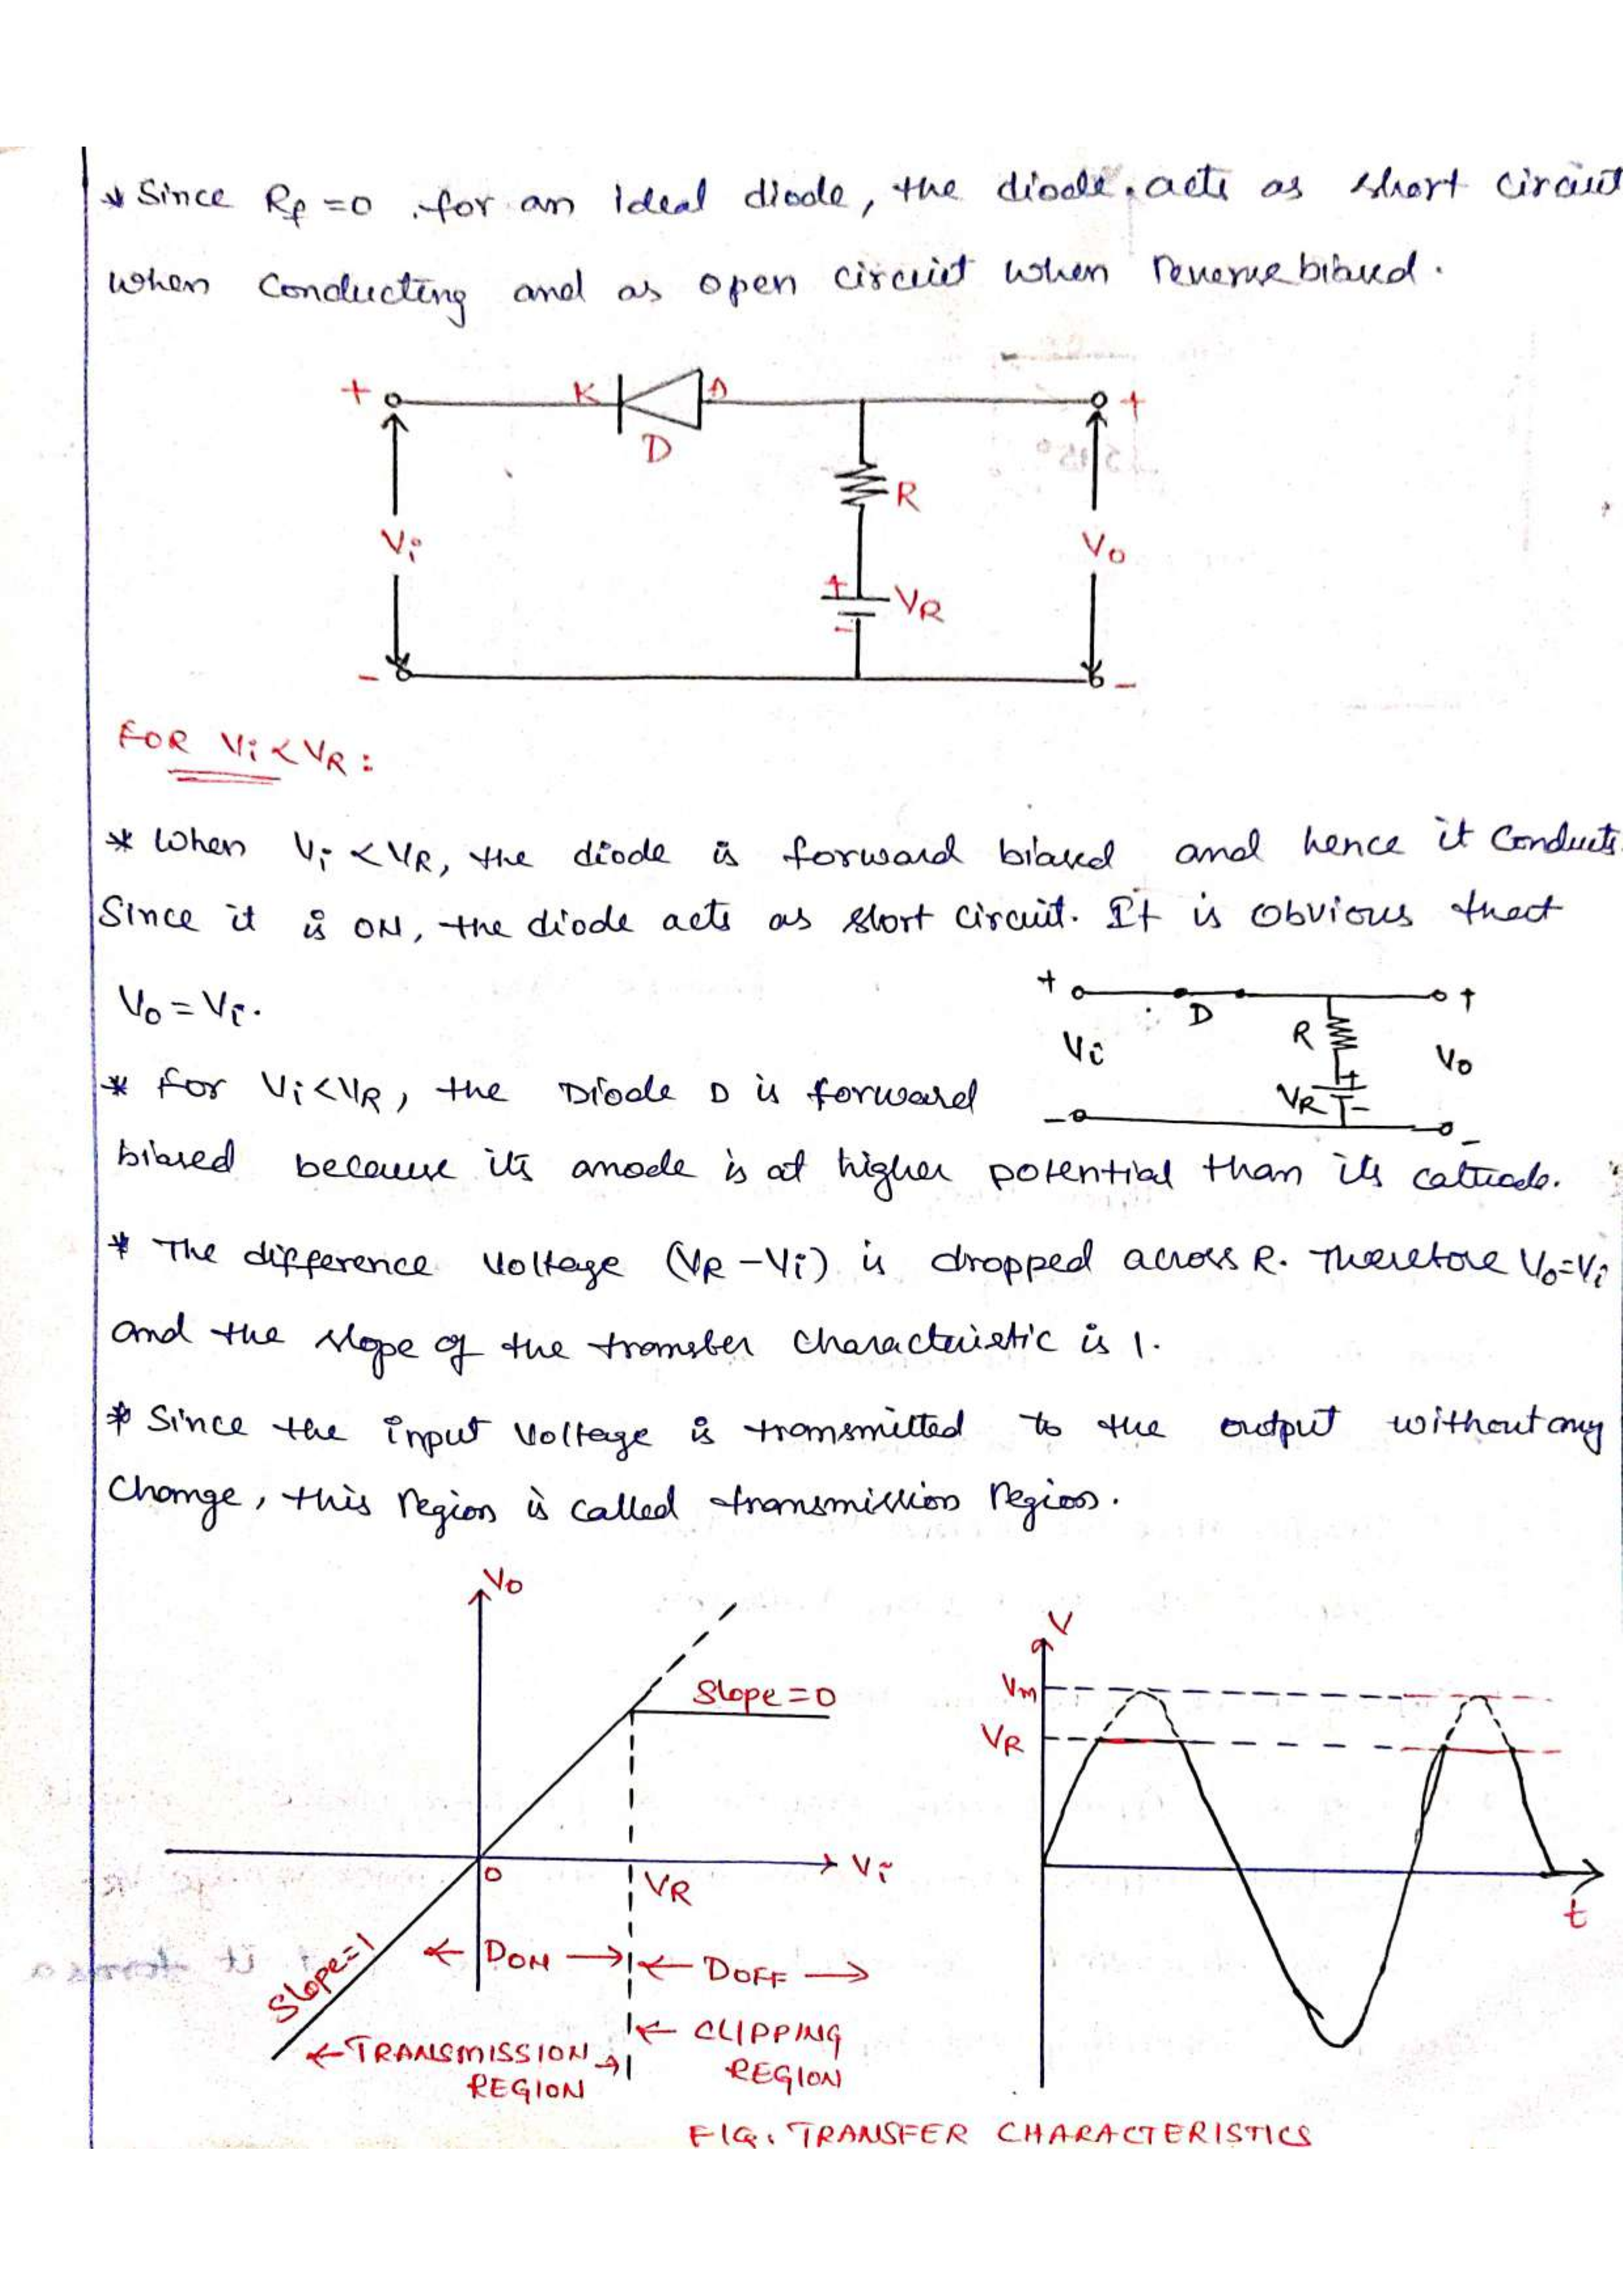 * Since Rf = 0 for an ideal diode, the diode acts as short circuit
when conducting and as open circuit when reverse biased.
+ K A +
D
R
Vi Vo
+
VR
-
- -
FOR Vi < VR :
* When Vi < VR, the diode is forward biased and hence it conducts.
Since it is ON, the diode acts as short circuit. It is obvious that
Vo = Vi.
+ D +
Vi R Vo
VR + -
- -
* for Vi < VR, the Diode D is forward
biased because its anode is at higher potential than its cathode.
* The difference voltage (VR - Vi) is dropped across R. Therefore Vo = Vi
and the slope of the transfer characteristic is 1.
* Since the input voltage is transmitted to the output without any
change, this region is called transmission region.
Vo
Slope = 0
0 VR Vi
Slope = 1
← DON → ← DOFF →
← TRANSMISSION REGION →
← CLIPPING REGION
V
Vm
VR
t
FIG. TRANSFER CHARACTERISTICS